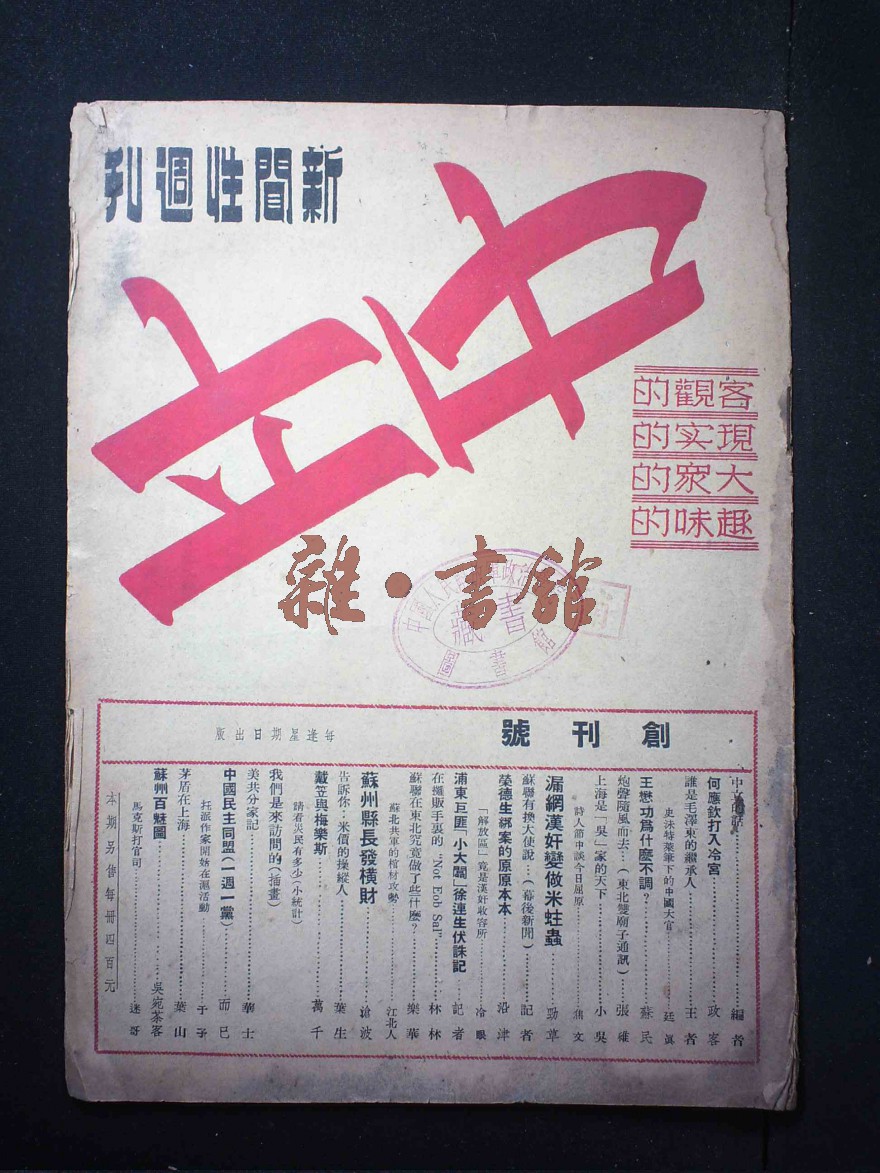 新聞性週刊
中立
客觀的
現实的
大眾的
趣味的
雜·書館
藏書
圖書館
創刊號
每逢星期日出版
中立的話 編者
何應欽打入冷宮 政客
誰是毛澤東的繼承人 王者
史沫特萊筆下的中國大官 廷真
王懋功爲什麽不調? 蘇民
炮聲隨風而去…(東北雙廟子通訊) 張維
上海是「吳」家的天下 小吳
詩人節中談今日屈原 文
漏網漢奸變做米蛀蟲 勁草
蘇聯有換大使說…(幕後新聞) 記者
榮德生綁案的原原本本 沿津
「解放區」竟是漢奸收容所 冷眼
浦東巨匪「小大鬍」徐連生伏誅記 記者
在繩販手裏的 "Not Eoh Sal" 林林
蘇聯在東北究竟做了些什麽? 樂華
蘇北共軍的棺材攻勢 江北人
蘇州縣長發橫財 滄波
告訴你:米價的操縱人 葉生
請看災民有多少(小統計)
戴笠與梅樂斯 萬千
我們是來訪問的(插畫)
美共分家記 華士
中國民主同盟(一週一黨) 而已
托派作家開始在滬活動 于予
茅盾在上海 葉山
蘇州百魅圖 吳宛茶客
馬克斯打官司 迷哥
本期另售每冊四百元